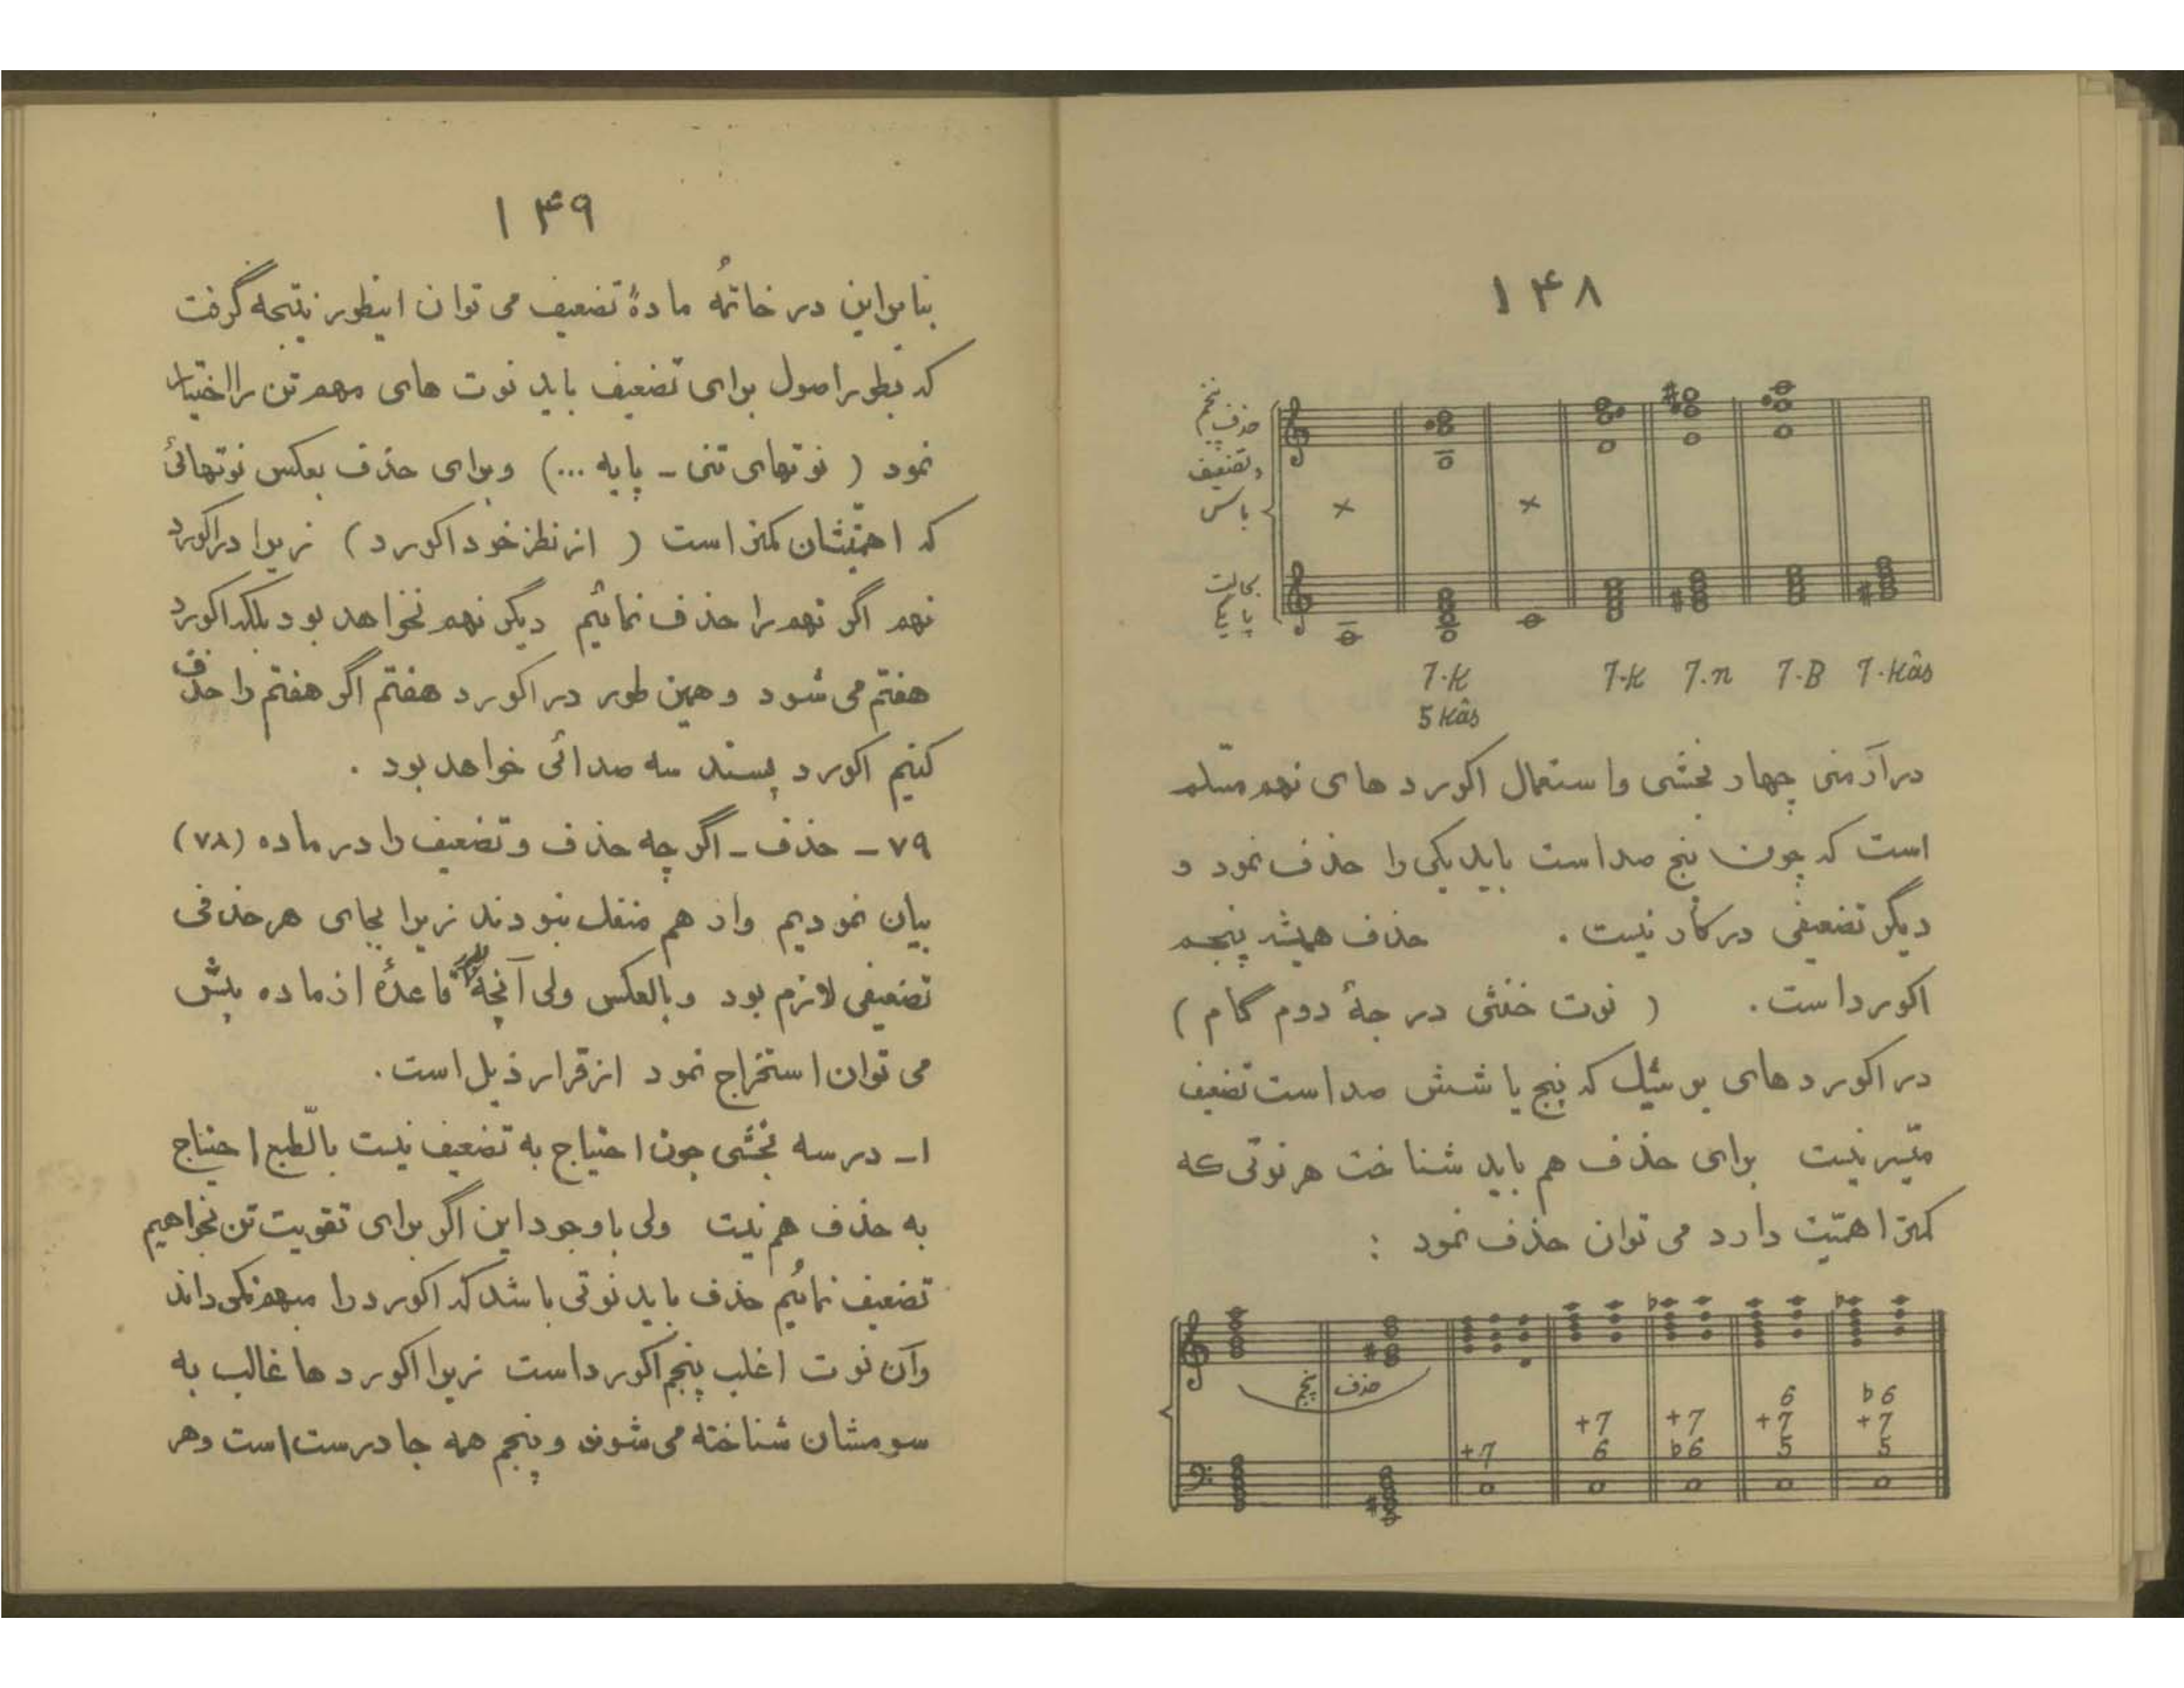 ۱۴۸
حذف پنجم
و تضعیف
باس
بحالت
پایگی
7-K 7-K 7.n 7-B 7-Kâs
5 Kâs
در آرمنی چهار بخشی و استعمال اکورد های نهم مسّلم
است که چون پنج صداست باید یکی را حذف نمود و
دیگر تضعیفی در کار نیست . حذف همیشه پنجم
اکورد است . ( نوت خنثی درجۀ دوم گام )
در اکورد های پو سُیل که پنج یا شش صداست تضعیف
میّسر نیست برای حذف هم باید شناخت هر نوتی که
کمتر اهمّیت دارد می توان حذف نمود :
حذف پنجم
+7 +7 6 +7 b6 6 +7 5 b6 +7 5
۱۴۹
بنابراین در خاتمُه مادۀ تضعیف می توان اینطور نتیجه گرفت
که بطور اصول برای تضعیف باید نوت های مهم تن را اختیار
نمود ( نوتهای تنی - پایه ...) و برای حذف بعکس نوتهائی
که اهمّیتشان کمتر است ( از نظر خود اکورد ) زیرا در اکورد
نهم اگر نهم را حذف نمائیم دیگر نهم نخواهد بود بلکه اکورد
هفتم می شود و همین طور در اکورد هفتم اگر هفتم را حذف
کنیم اکورد پسند سه صدائی خواهد بود .
۷۹ - حذف - اگر چه حذف و تضعیف را در ماده (۷۸)
بیان نمودیم و از هم منفک نبودند زیرا بجای هر حذفی
تضعیفی لازم بود و بالعکس ولی آنچه قاعدۀ از ماده پیش
می توان استخراج نمود از قرار ذیل است .
۱- در سه بخشی چون احتیاج به تضعیف نیست بالّطبع احتیاج
به حذف هم نیست ولی با وجود این اگر برای تقویت تن بخواهیم
تضعیف نمائیم حذف باید نوتی باشد که اکورد را مبهم نگرداند
و آن نوت اغلب پنجم اکورد است زیرا اکورد ها غالب به
سومشان شناخته می شوند و پنجم همه جا درست است و هر